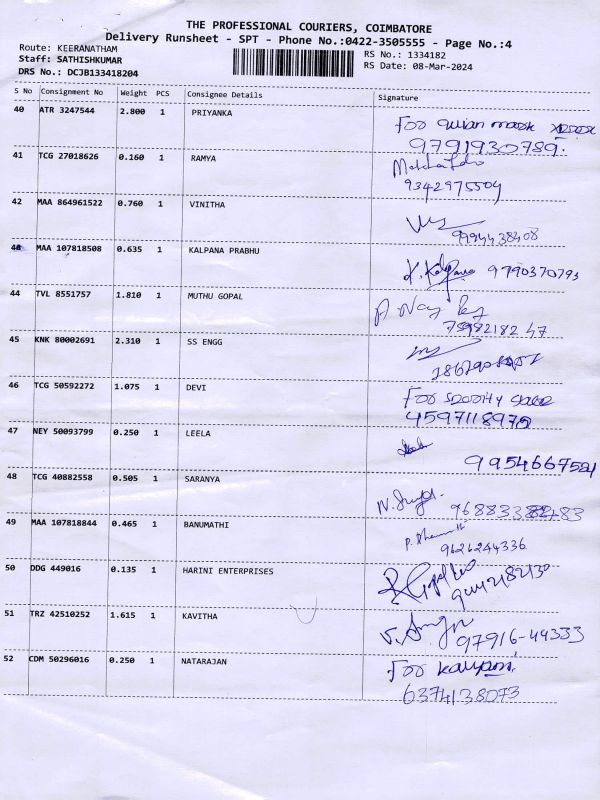 THE PROFESSIONAL COURIERS, COIMBATORE
Delivery Runsheet - SPT - Phone No.:0422-3505555 - Page No.:4
Route: KEERANATHAM
RS No.: 1334182
Staff: SATHISHKUMAR
RS Date: 08-Mar-2024
DRS No.: DCJB133418204
S No Consignment No Weight PCS Consignee Details Signature
40 ATR 3247544 2.800 1 PRIYANKA
For
9791930789.
41 TCG 27018626 0.160 1 RAMYA
9342975504
42 MAA 864961522 0.760 1 VINITHA
9994438408
43 MAA 107818508 0.635 1 KALPANA PRABHU
K. Kalpana 9790370793
44 TVL 8551757 1.810 1 MUTHU GOPAL
45 KNK 80002691 2.310 1 SS ENGG
46 TCG 50592272 1.075 1 DEVI
For
4597118975
47 NEY 50093799 0.250 1 LEELA
48 TCG 40882558 0.505 1 SARANYA
49 MAA 107818844 0.465 1 BANUMATHI
9626244336
50 DDG 449016 0.135 1 HARINI ENTERPRISES
51 TRZ 42510252 1.615 1 KAVITHA
97916-49333
52 CDM 50296016 0.250 1 NATARAJAN
For
6374138073